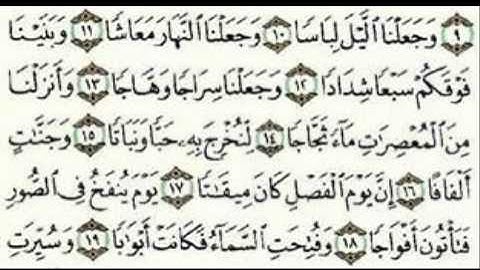 ٩ وَجَعَلْنَا ٱلَّيْلَ لِبَاسًا ١٠ وَجَعَلْنَا ٱلنَّهَارَ مَعَاشًا ١١ وَبَنَيْنَا
فَوْقَكُمْ سَبْعًا شِدَادًا ١٢ وَجَعَلْنَا سِرَاجًا وَهَّاجًا ١٣ وَأَنزَلْنَا
مِنَ ٱلْمُعْصِرَٰتِ مَآءً ثَجَّاجًا ١٤ لِّنُخْرِجَ بِهِۦ حَبًّا وَنَبَاتًا ١٥ وَجَنَّٰتٍ
أَلْفَافًا ١٦ إِنَّ يَوْمَ ٱلْفَصْلِ كَانَ مِيقَٰتًا ١٧ يَوْمَ يُنفَخُ فِى ٱلصُّورِ
فَتَأْتُونَ أَفْوَاجًا ١٨ وَفُتِحَتِ ٱلسَّمَآءُ فَكَانَتْ أَبْوَٰبًا ١٩ وَسُيِّرَتِ